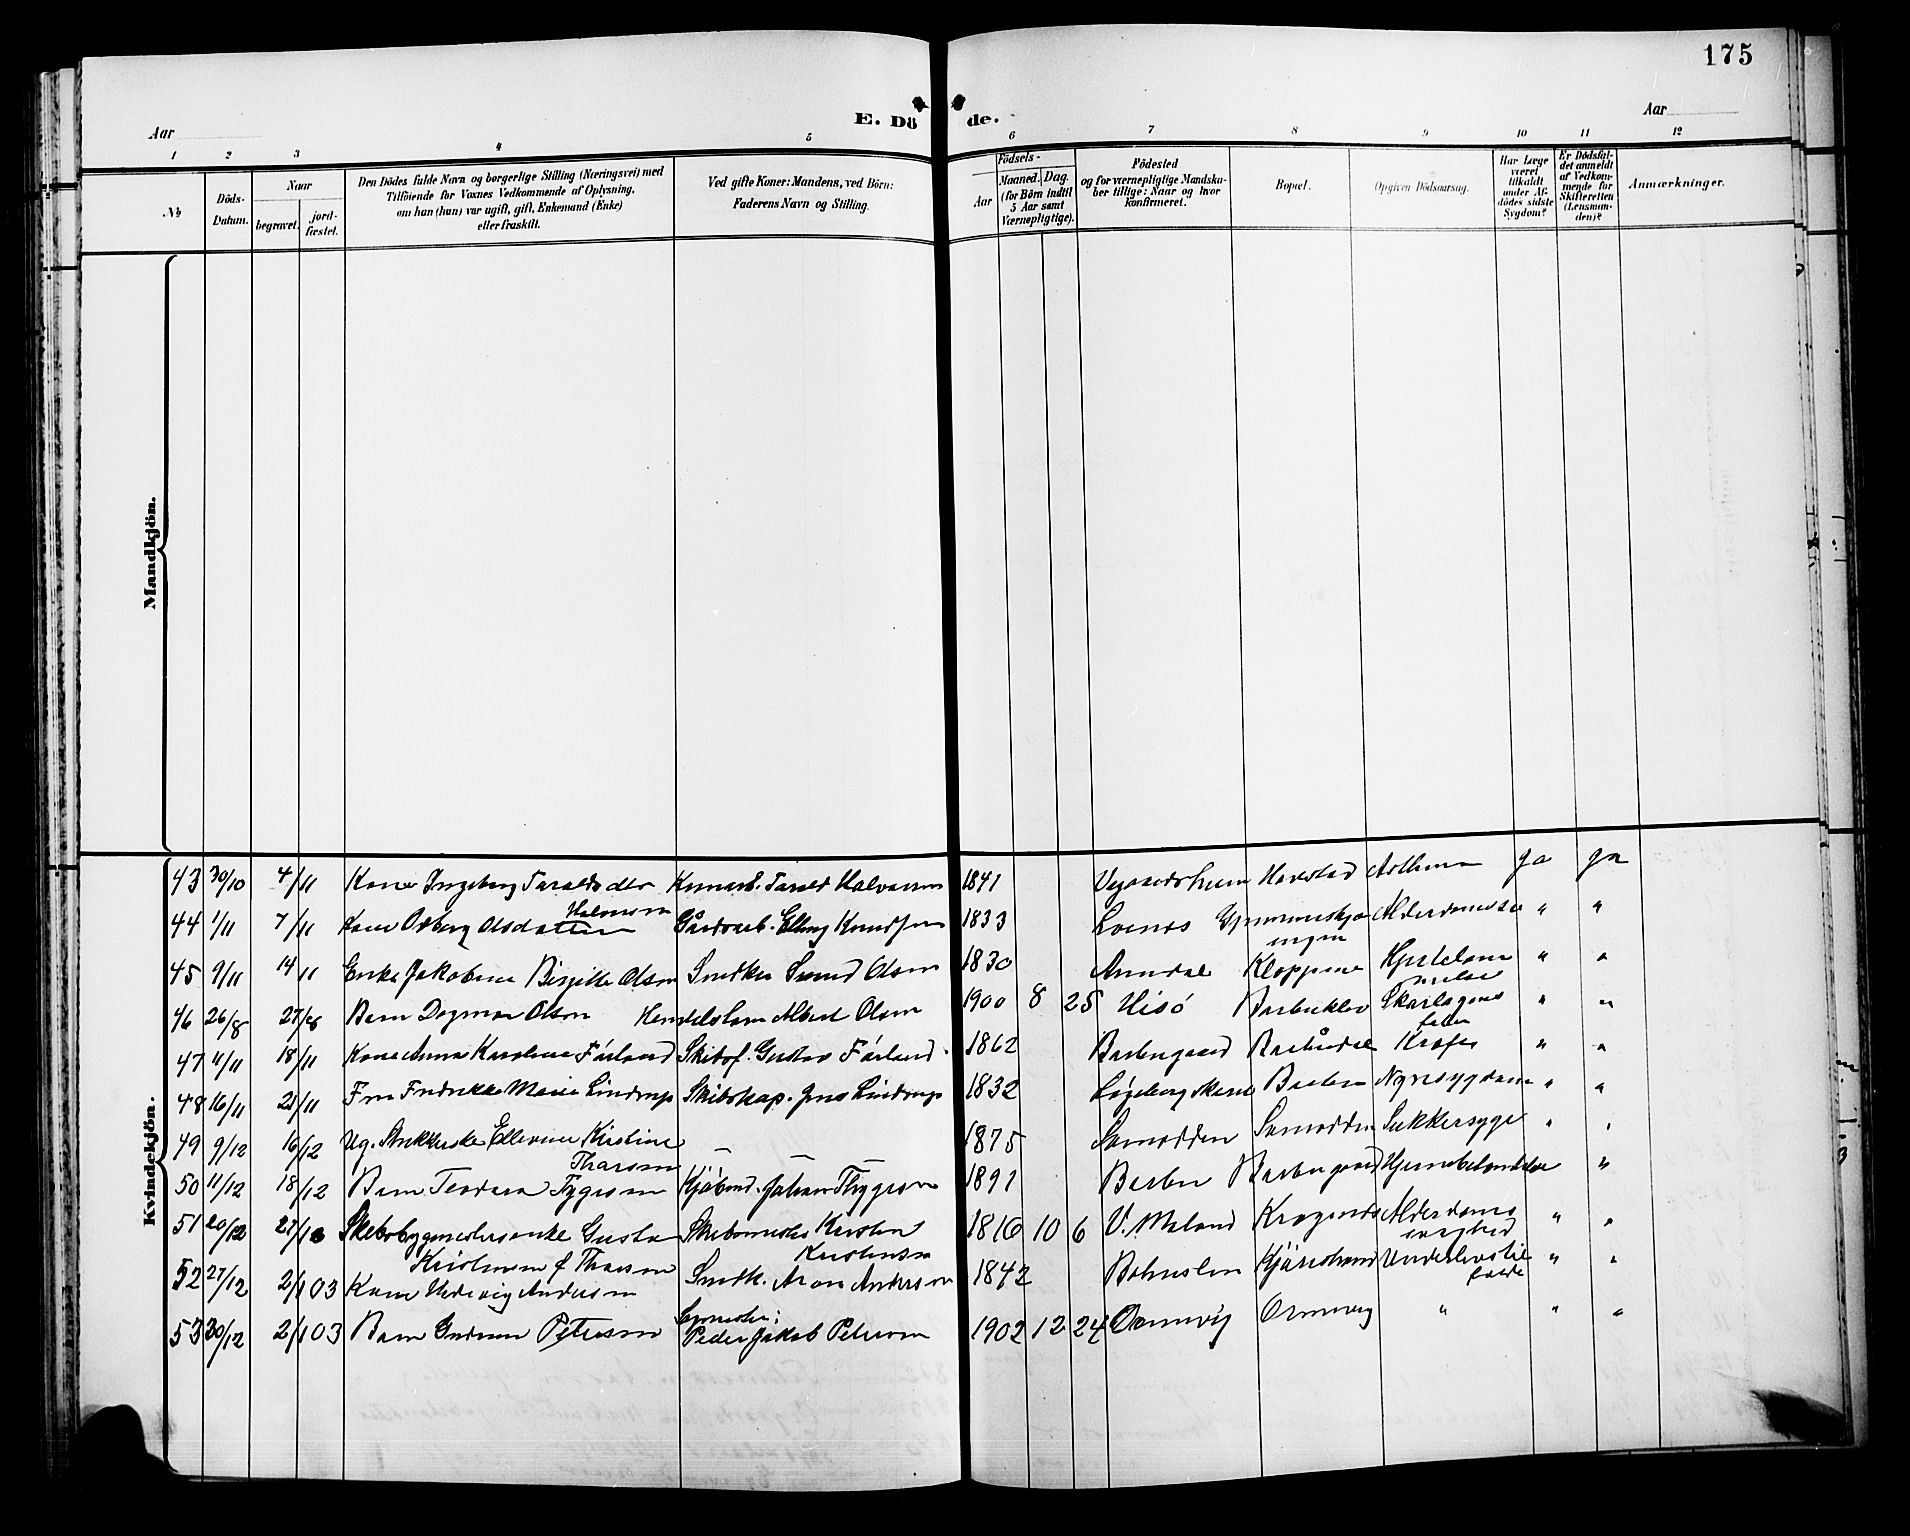 175
E. Dö de.
Aar
Aar
1 2 3 4 5 6 7 8 9 10 11 12
№
Döds-
Datum.
Naar
begravet.
jord-
fæstet.
Den Dödes fulde Navn og borgerlige Stilling (Næringsvei) med
Tilföiende for Voxnes Vedkommende af Oplysning,
om han (hun) var ugift, gift, Enkemand (Enke)
eller fraskilt.
Ved gifte Koner: Mandens, ved Börn:
Faderens Navn og Stilling.
Födsels-
Aar
Maaned. Dag.
(for Börn indtil
5 Aar samt
Værnepligtige).
Födested
og for værnepligtige Mandska-
ber tillige: Naar og hvor
konfirmeret.
Bopæl.
Opgiven Dödsaarsag.
Har Læge
været
tilkaldt
under Af-
dödes sidste
Sygdom?
Er Dödsfal-
det anmeldt
af Vedkom-
mende for
Skifteretten
(Lensman-
den)?
Anmærkninger.
Mandkjön.
Kvindekjön.
43 30/10 4/11 Kone Ingeborg Taraldsdtr Tarald Halvorsen 1841 Havstad Asthma ja ja
Halvorsen
44 1/11 7/11 Kone Olsdatter Gårdarb. Elling Knudsen 1833 Alderdomssv " "
45 9/11 14/11 Enke Jakobine Birgitte Olsen Snedker Svend Olsen 1830 Arendal Kloppene Hjertelam " "
melse
46 26/8 27/8 Barn Dagmar Olsen Handelsmm Albert Olsen 1900 8 25 Hisö Barbuklev Skarlagens " "
feber
47 4/11 18/11 Kone Anna Karoline Förland Skibsf. Gustav Förland 1862 Barbugaard Barbudal Kræft " "
48 16/11 21/11 Fru Fredrikke Marie Lindrup Skibskap. Jens Lindrup 1832 Barbu Nyresygdom " "
49 9/12 16/12 Ug. Ellevine Kirstine — — — 1875 Songodden Sukkersyge " "
Tharsen
50 11/12 18/12 Barn Teodora Tygesen Johan Thygesen 1891 Barbu Barbugaard Hjernebetændelse "
51 20/12 27/12 Skibsbyggmestersenke Gusta Kristen 1816 10 6 V. Moland Alderdoms " "
Kristensen f. Tharsen Kristensen svaghed
52 27/12 2/1 03 Kone Hedevig Andersen Snedk. Aron Andersen 1842 Bohuslen Underlivstil " "
fælde
53 30/12 2/1 03 Barn Gudrun Petersen Peder Jakob Petersen 1902 12 24 Ormevig Ormevig " " "